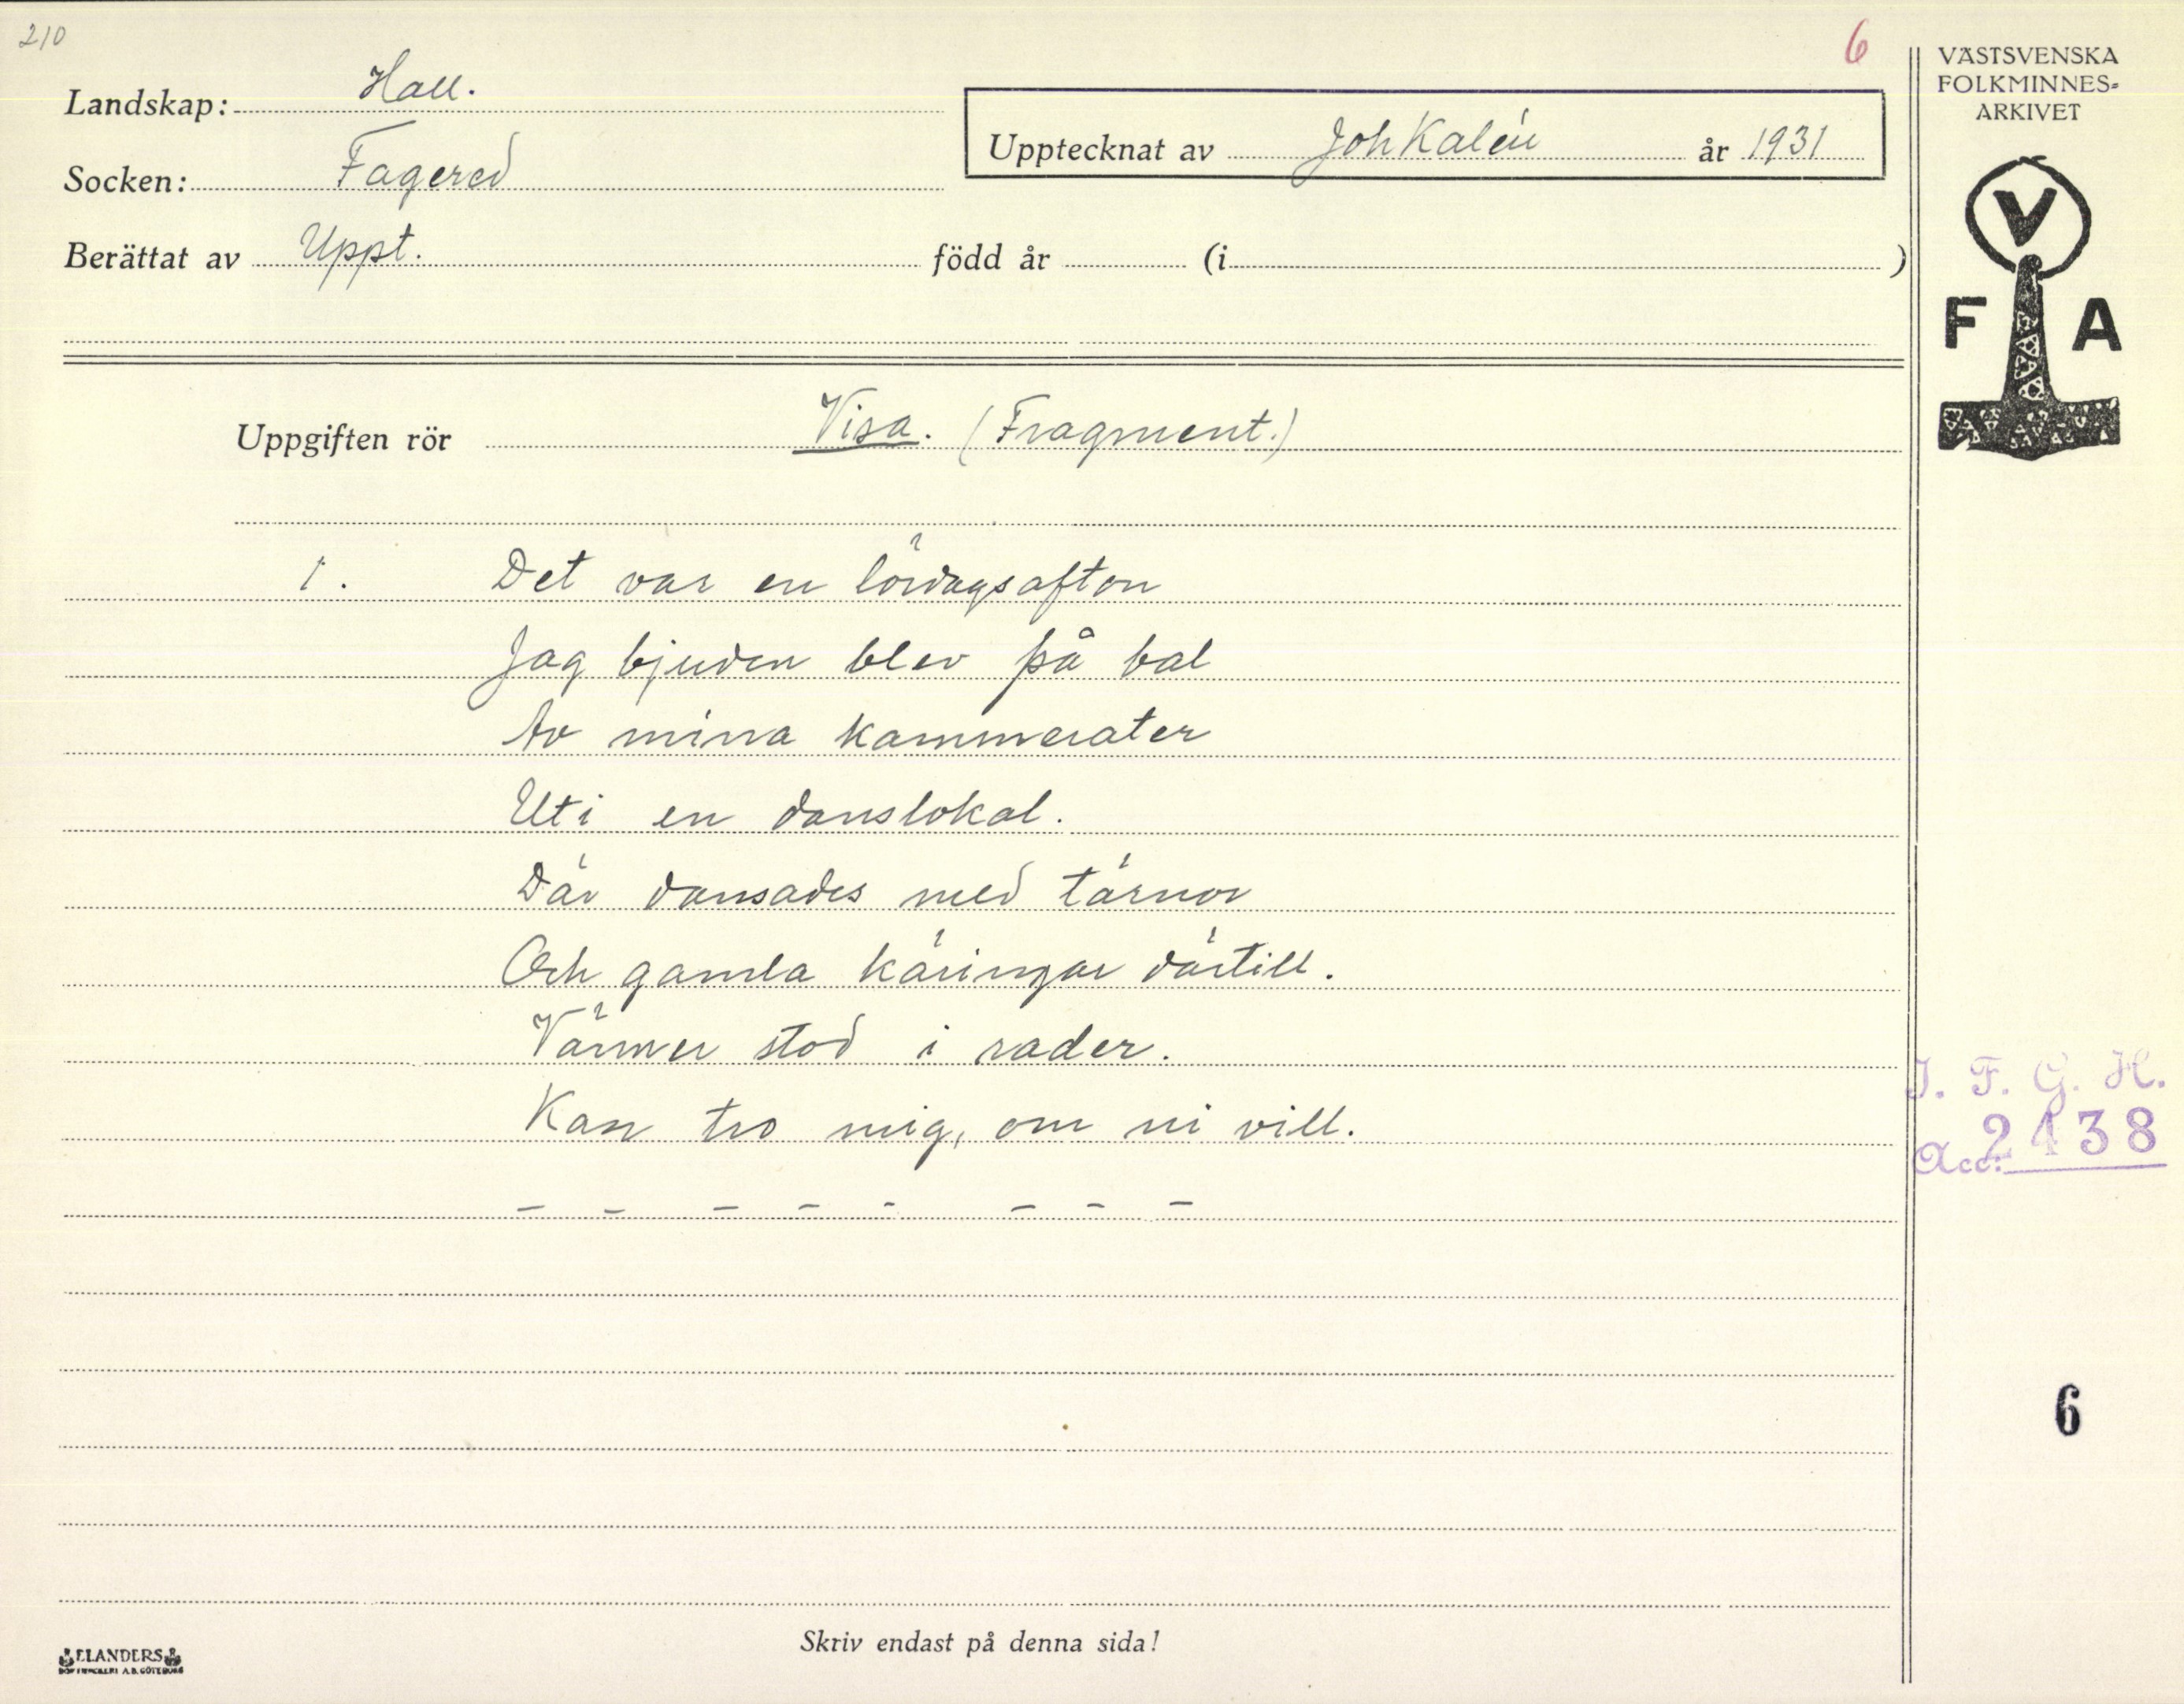 210
6
VÄSTSVENSKA
FOLKMINNES-
ARKIVET
Landskap: Hall.
Upptecknat av Joh Kalén år 1931
Socken: Fagered
Berättat av Uppt. född år (i )
V
F A
Uppgiften rör Visa. (Fragment.)
1. Det var en lördagsafton
Jag bjuden blev på bal
Av mina kammerater
Uti en danslokal.
Där dansades med tärnor
Och gamla käringar därtill.
Vänner stod i rader.
Kan tro mig, om ni vill.
– – – – – – – –
I. F. G. H.
Acc: 2438
6
Skriv endast på denna sida!
ELANDERS
BOKTRYCKERI A.B. GÖTEBORG